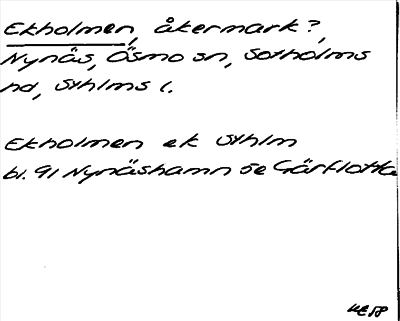 Ekholmen, åkermark?,
Nynäs, Ösmo sn, Sotholms
hd, Sthlms l.
Ekholmen ek Sthlm
bl. 91 Nynäshamn 5e Gårflotta